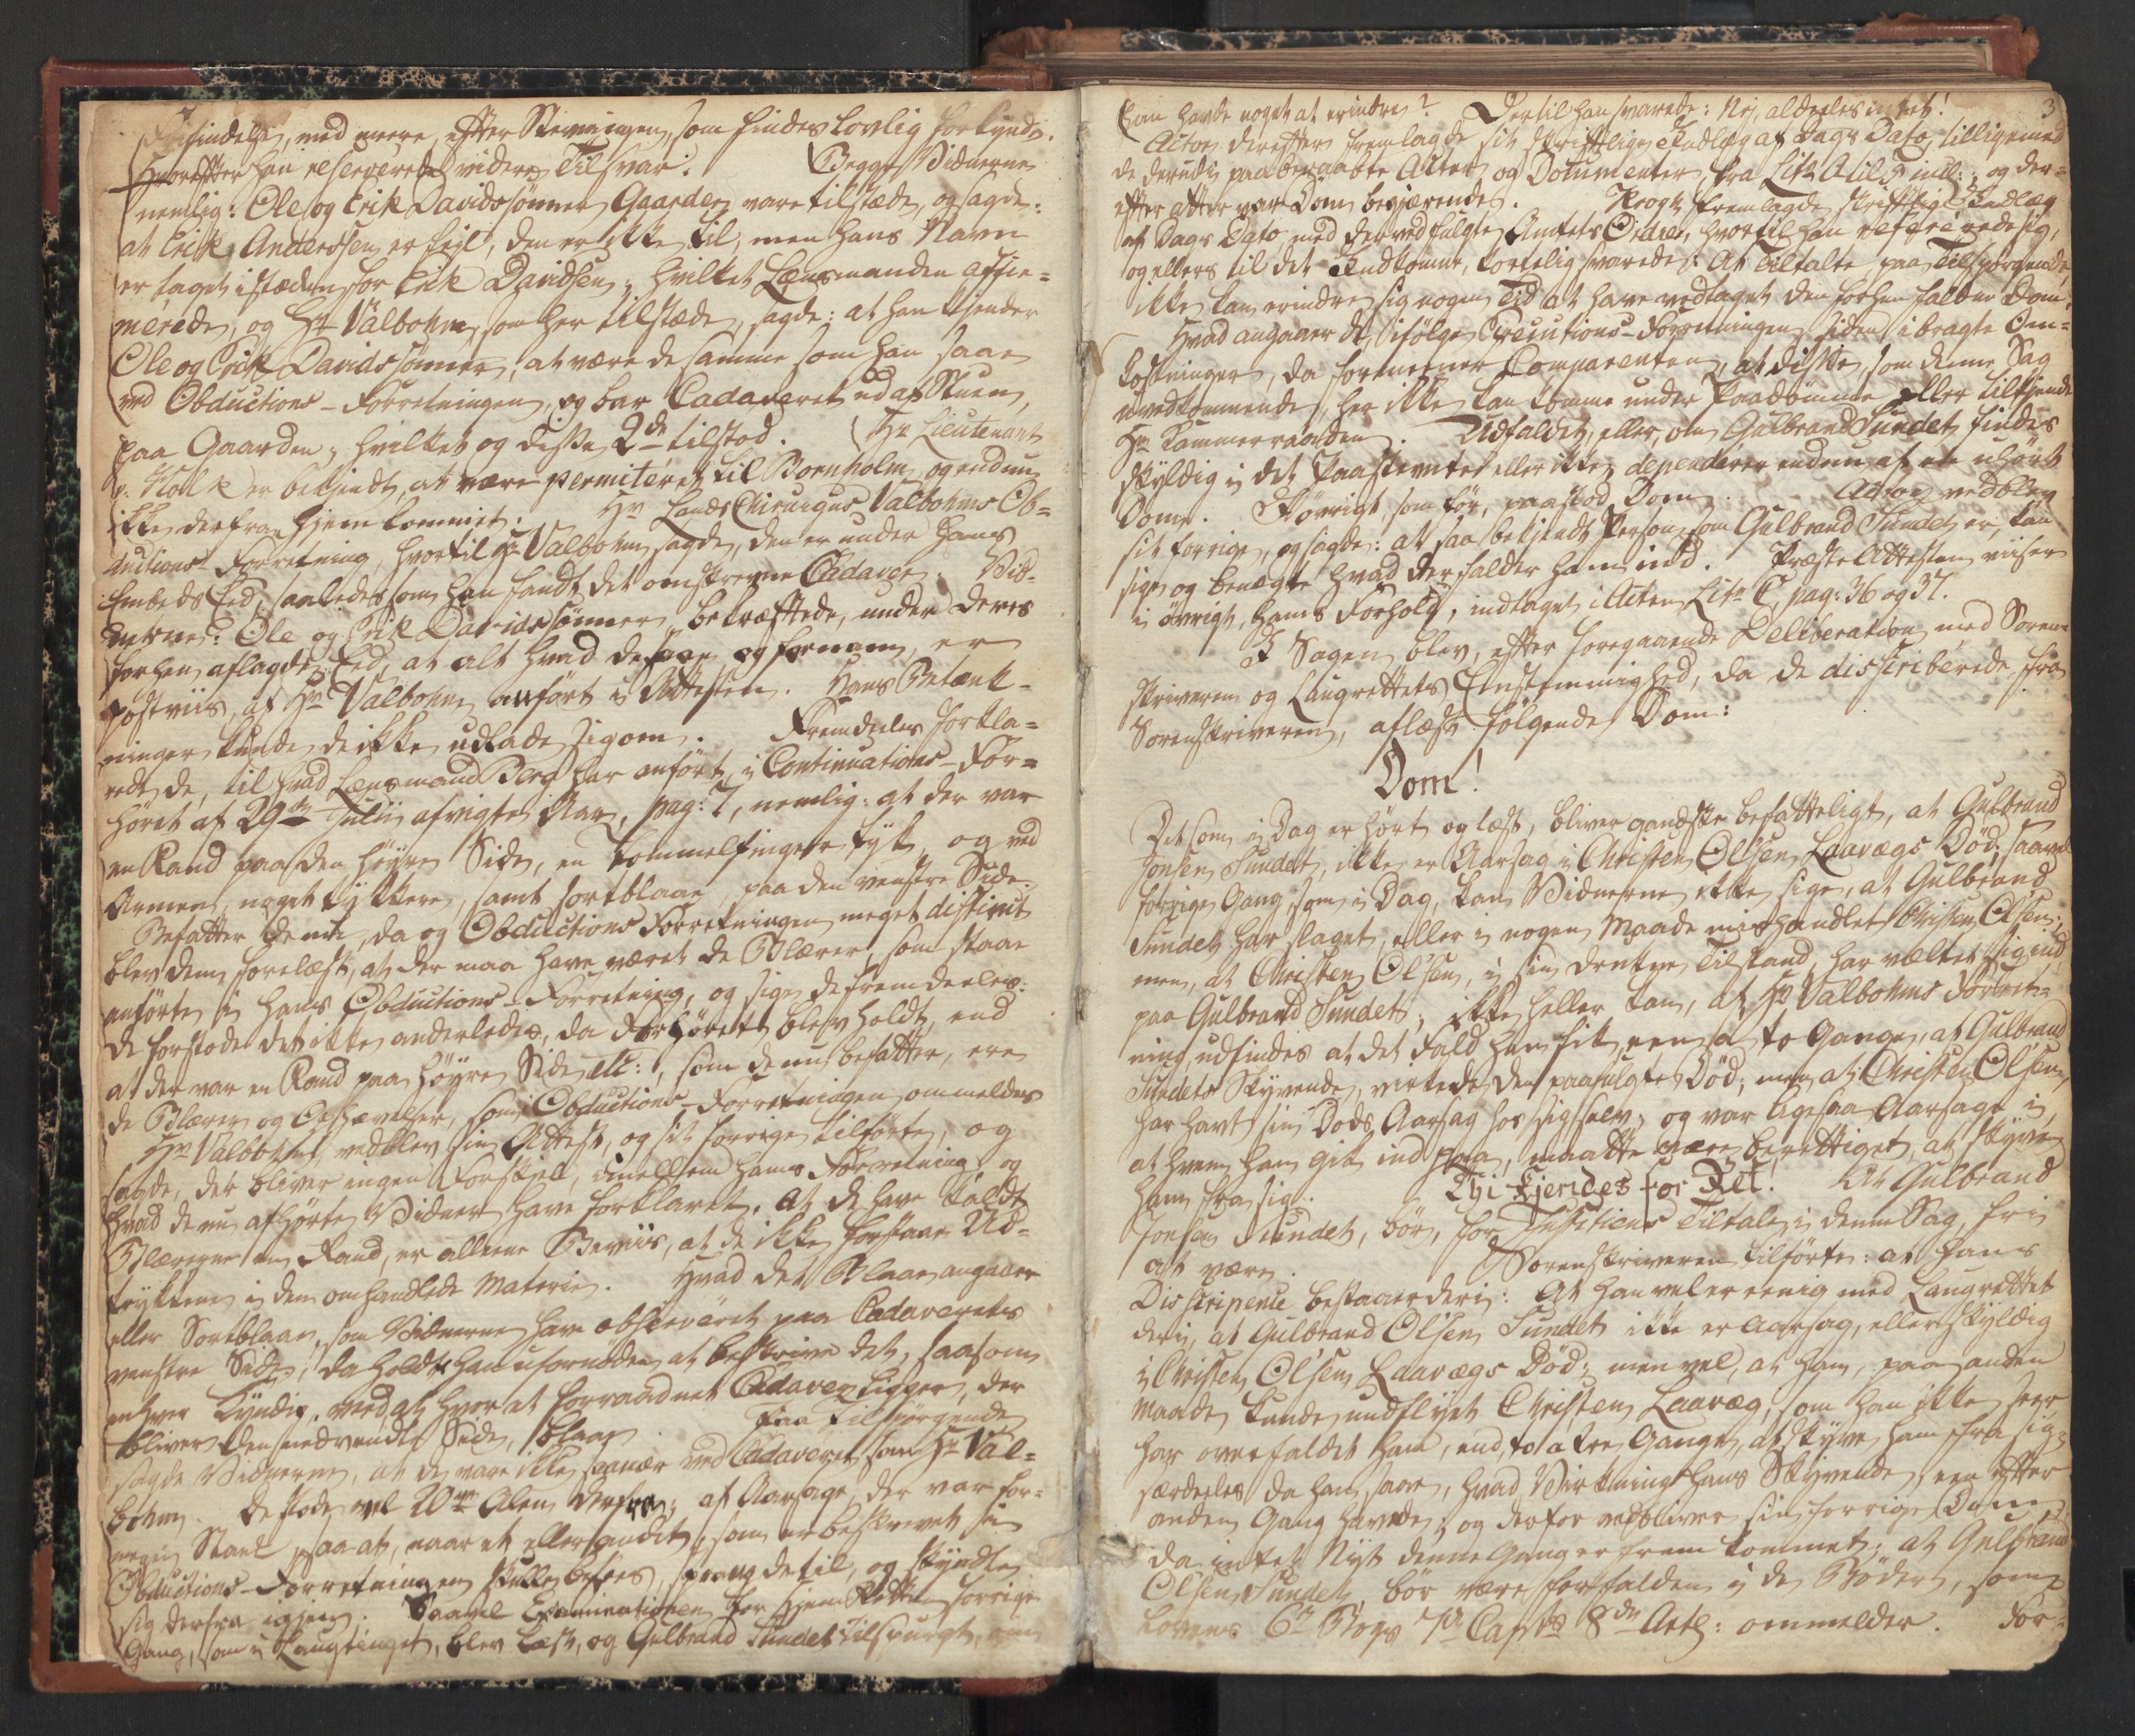 Frifindelse, med mere, efter Stevningen, som findes lovlig forkyndt.
Hvorefter han reserverede videre Tilsvar. Begge Vidnerne
nemlig: Ole og Erik Davidssønner Gaarder vare tilstæde, og sagde:
at Erik Anderssen er fejl, den er ikke til, men hans Navn
er taget i stæden for Erik Davidsen; hvilket Lænsmanden affir-
merede, og Hr Valbohm, som her tilstæde, sagde: at han kjender
Ole og Erik Davidssønner, at være de samme som han saae
ved Obductions-Forretningen, og bar Cadaveret ud af Stuen,
paa Gaarden; hvilket og disse 2de tilstod. Hr Lieutenant
v. Holk er bekjendt, at være permiteret til Bornholm, og endnu
ikke derfra hjemkommet. Hr LandsChirurgus Valbohms Ob-
ductions Forretning, hvortil Hr Valbohm sagde, den er under hans
Embeds Eed, saaledes som han fandt det omskrevne Cadaver. Vid-
nerne: Ole og Erik Davidssønner bekræftede, under deres
forhen aflagde Eed, at alt hvad de saae og fornam, er
postviis, af Hr Valbohm anført i Attesten. Hans Betænk-
ninger kunde de ikke udlade sig om. Fremdeeles forkla-
rede de, til hvad Lænsmand Berg har anført i Continuations-For-
høret af 29de Julii afvigte Aar, pag: 7, nemlig: at der var
en Rand paa den høyre Side, en Tommelfinger tyk, og ved
Armen, noget tykkere, samt sortblaae paa den venstre Side.
Befatter de nu, da og Obductions Forretningen meget distinct
blev dem forelæst, at der maa have været de Blærer, som staae
anførte i hans Obductions-Forretning, og siger de fremdeeles:
de forstode det ikke anderledes, da Forhøret blev holdt, end
at der var en Rand paa høyre Side etc:, som de nu befatter, ere
de Blærer og Ophævelser, som Obductions-Forretningen ommelder
Hr Valbohm vedblev sin Attest, og sit forrige tilførte, og
sagde, der bliver ingen Forskjel, imellem hans Forretning og
hvad de nu afhørte Vidner have forklaret. At de have kaldt
Blærerne en Rand, er alleene Beviis, at de ikke forstaae Ud-
trykkene i den omhandlede Materie. Hvad det Blaae angaaer
eller Sortblaae, som Vidnerne have observeret paa Cadaverets
venstre Side, da holdte han ufornøden at beskrive det, saasom
enhver kyndig, ved, at hvor at forraadnet Cadaver ligger, der
bliver den nedvendte Side, blaae. Paa Tilspørgende
sagde Vidnerne, at de vare ikke saa nær ved Cadaveret som Hr Val-
bohm. De stode vel 20ve Alen derfra; af Aarsage, der var for-
megen Stank, saa at, naar et eller andet, som er beskrevet i
Obductions-Forretningen skulle besees, sprang de til, og skyndte
sig derfra igjen. Saavel Examinationen for Hjemretten forrige
Gang, som i Laugtinget, blev læst, og Gulbrand Sundet tilspurgt, om
3
han havde noget at erindre? Dertil han svarede: Nej, aldeeles intet!
Actor derefter fremlagde sit skriftlige Indlæg af Dags Dato, tilligemed
de derudi paaberaabte Acter og Documenter, fra Litr A til G incl:, og der-
efter atter var Dom begjærende. Krogh fremlagde skriftlig Indlæg
af Dags Dato, med derved fulgte Amtets Ordre, hvortil han refererede sig,
og ellers til det Indkomne, kortelig svarede: At Tiltalte, paa Tilspørgende,
ikke kan erindre sig nogen Tid at have vedtaget den forhen faldne Dom.
Hvad angaaer de, ifølge Executions-Forretningen, siden ibragte Om-
kostninger, da formeener Comparenten, at disse, som denne Sag
uvedkommende, her ikke kan komme under Paadømme eller tilkjende
Hr Kammerraaden. Udfaldet, eller, om Gulbrand Sundet findes
skyldig i det Paastevnte eller ikke, dependerer endnu af en uhørt
Dom. I øvrigt, som før, paastod Dom. Actor vedblev
sit forrige, og sagde: at saa bekjendt Person, som Gulbrand Sundet er, kan
sige og benægte hvad der falder ham ind. Præste Attesten viiser
i øvrigt, hans Forhold, indtaget i Acten Litr C, pag: 36 og 37.
I Sagen blev, efter foregaaende Deliberation, med Soren-
skriveren og Laugrettets Eenstemmighed, da de discriberede fra
Sorenskriveren, aflæst følgende Dom:
Dom!
Det som i Dag er hørt og læst, bliver gandske befatteligt, at Gulbrand
Jonsen Sundet, ikke er Aarsag i Christen Olsen Laavægs Død; saavel
forrige Gang, som i Dag, kan Vidnerne ikke sige, at Gulbrand
Sundet har slaget, eller i nogen Maade mishandlet Christen Olsen;
men, at Christen Olsen, i sin drukne Tilstand, har væltet sig ind
paa Gulbrand Sundet; ikke heller kan, af Hr Valbohms Forret-
ning, udfindes at det Fald han fik, een a to Gange, af Gulbrand
Sundets Skyvende, virkede den paafulgte Død; men at Christen Olsen,
har havt sin Døds Aarsag hos sig selv; og var ligesaa Aarsage i,
at hvem han gik ind paa, maatte være berettiget, at skyve
ham fra sig. Thi kjendes for Ret: At Gulbrand
Jonsen Sundet, bør, for Justitiens Tiltale i denne Sag, fri
at være. Sorenskriveren tilførte: at hans
Discripence bestaaer deri: At han vel er eenig med Laugrettet
deri, at Gulbrand Olsen Sundet ikke er Aarsag, eller skyldig
i Christen Olsen Laavægs Død; men vel, at han, paa anden
Maade, kunde undflyet Christen Laavæg, som han ikke seer
har overfaldet ham, end to a tre Gange, at skyve ham fra sig;
særdeeles da han saae, hvad Virkning hans Skyvende, een efter
anden Gang havde; og derfor vedbliver sin forrige Dom,
da intet Nyt denne Gang er fremkommet; at Gulbrand
Olsen Sundet, bør være forfalden i de Bøder, som
Lovens 6te Bogs 7de Capts 8de Artl: ommelder. For-